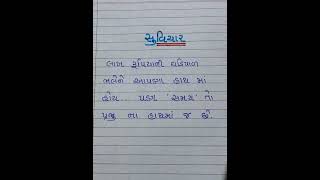 સુવિચાર
લાખ રૂપિયાની ઘડિયાળ
ભલેને આપણા હાથ માં
હોય... પણ 'સમય' તો
પ્રભુ ના હાથમાં જ છે.